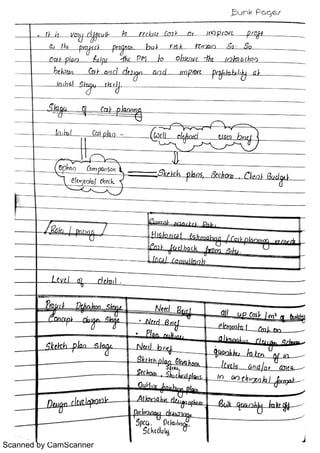 Bunk Pages
• It is very difficult to reduce cost or improve profit
as the project progress, but risk remain so. So
cost plan helps the PM to observe the interaction
between Cost and design and improve profitability at
initial stage itself.
Stage of Cost planning
Initial Cost plan -
Well defined users brief
Option Comparison
elemental check
Sketch plans, Sections, Client Budget
Rate / pricing
Current market Rate
Historical Estimating / Cost planning records
Cost feedback from Site
local consultants
Level of detail.
Project Definition Stage
Need Brief
all up Cost / m² of building
Concept design Stage
• Need Brief
• Plan outlines
elemental Cost on
alternative design scheme
Sketch plan stage
Need brief
Sketch plan, Elevations
Section, Structural plans
Outline
quantities taken off in
levels and/or area
in an elemental format
Design development
Alternative design option
Preliminary drawings
Spec. Detailings
Schedules
Bulk quantity take off
Scanned by CamScanner